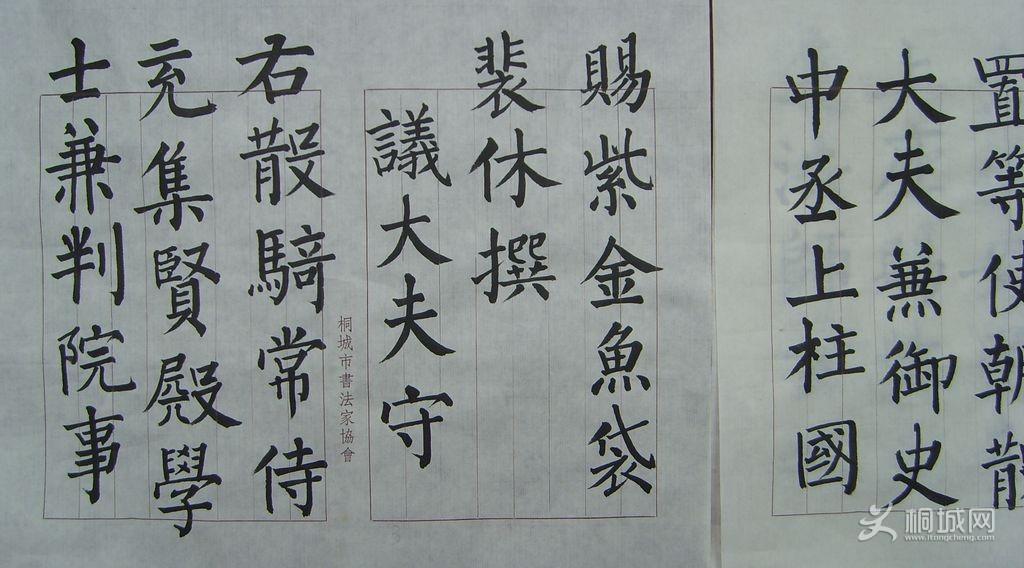 置等使朝散
大夫兼御史
中丞上柱國
賜紫金魚袋
裴休撰
議大夫守
右散騎常侍
充集賢殿學
士兼判院事
桐城市書法家協會
桐城网
www.itongcheng.com